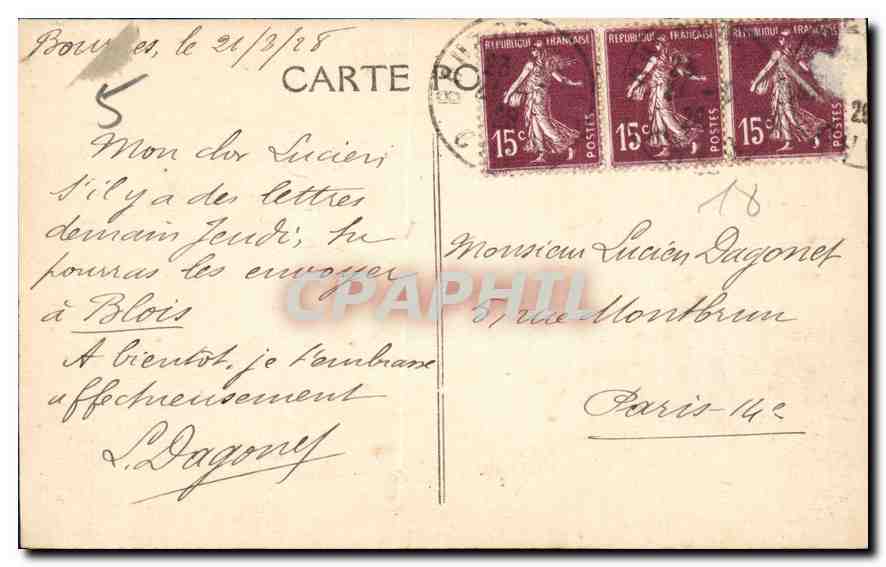 Bourges, le 21/3/28
CARTE PO
5
REPUBLIQUE FRANÇAISE
15c
POSTES
REPUBLIQUE FRANÇAISE
15c
POSTES
REPUBLIQUE FRANÇAISE
15c
POSTES
18
Mon cher Lucien
S'il y a des lettres
demain Jeudi, tu
pourras les envoyer
à Blois
A bientot, je t'embrasse
affectueusement
L. Dagonet
Monsieur Lucien Dagonet
5 rue Montbrun
Paris 14e
CPAPHIL